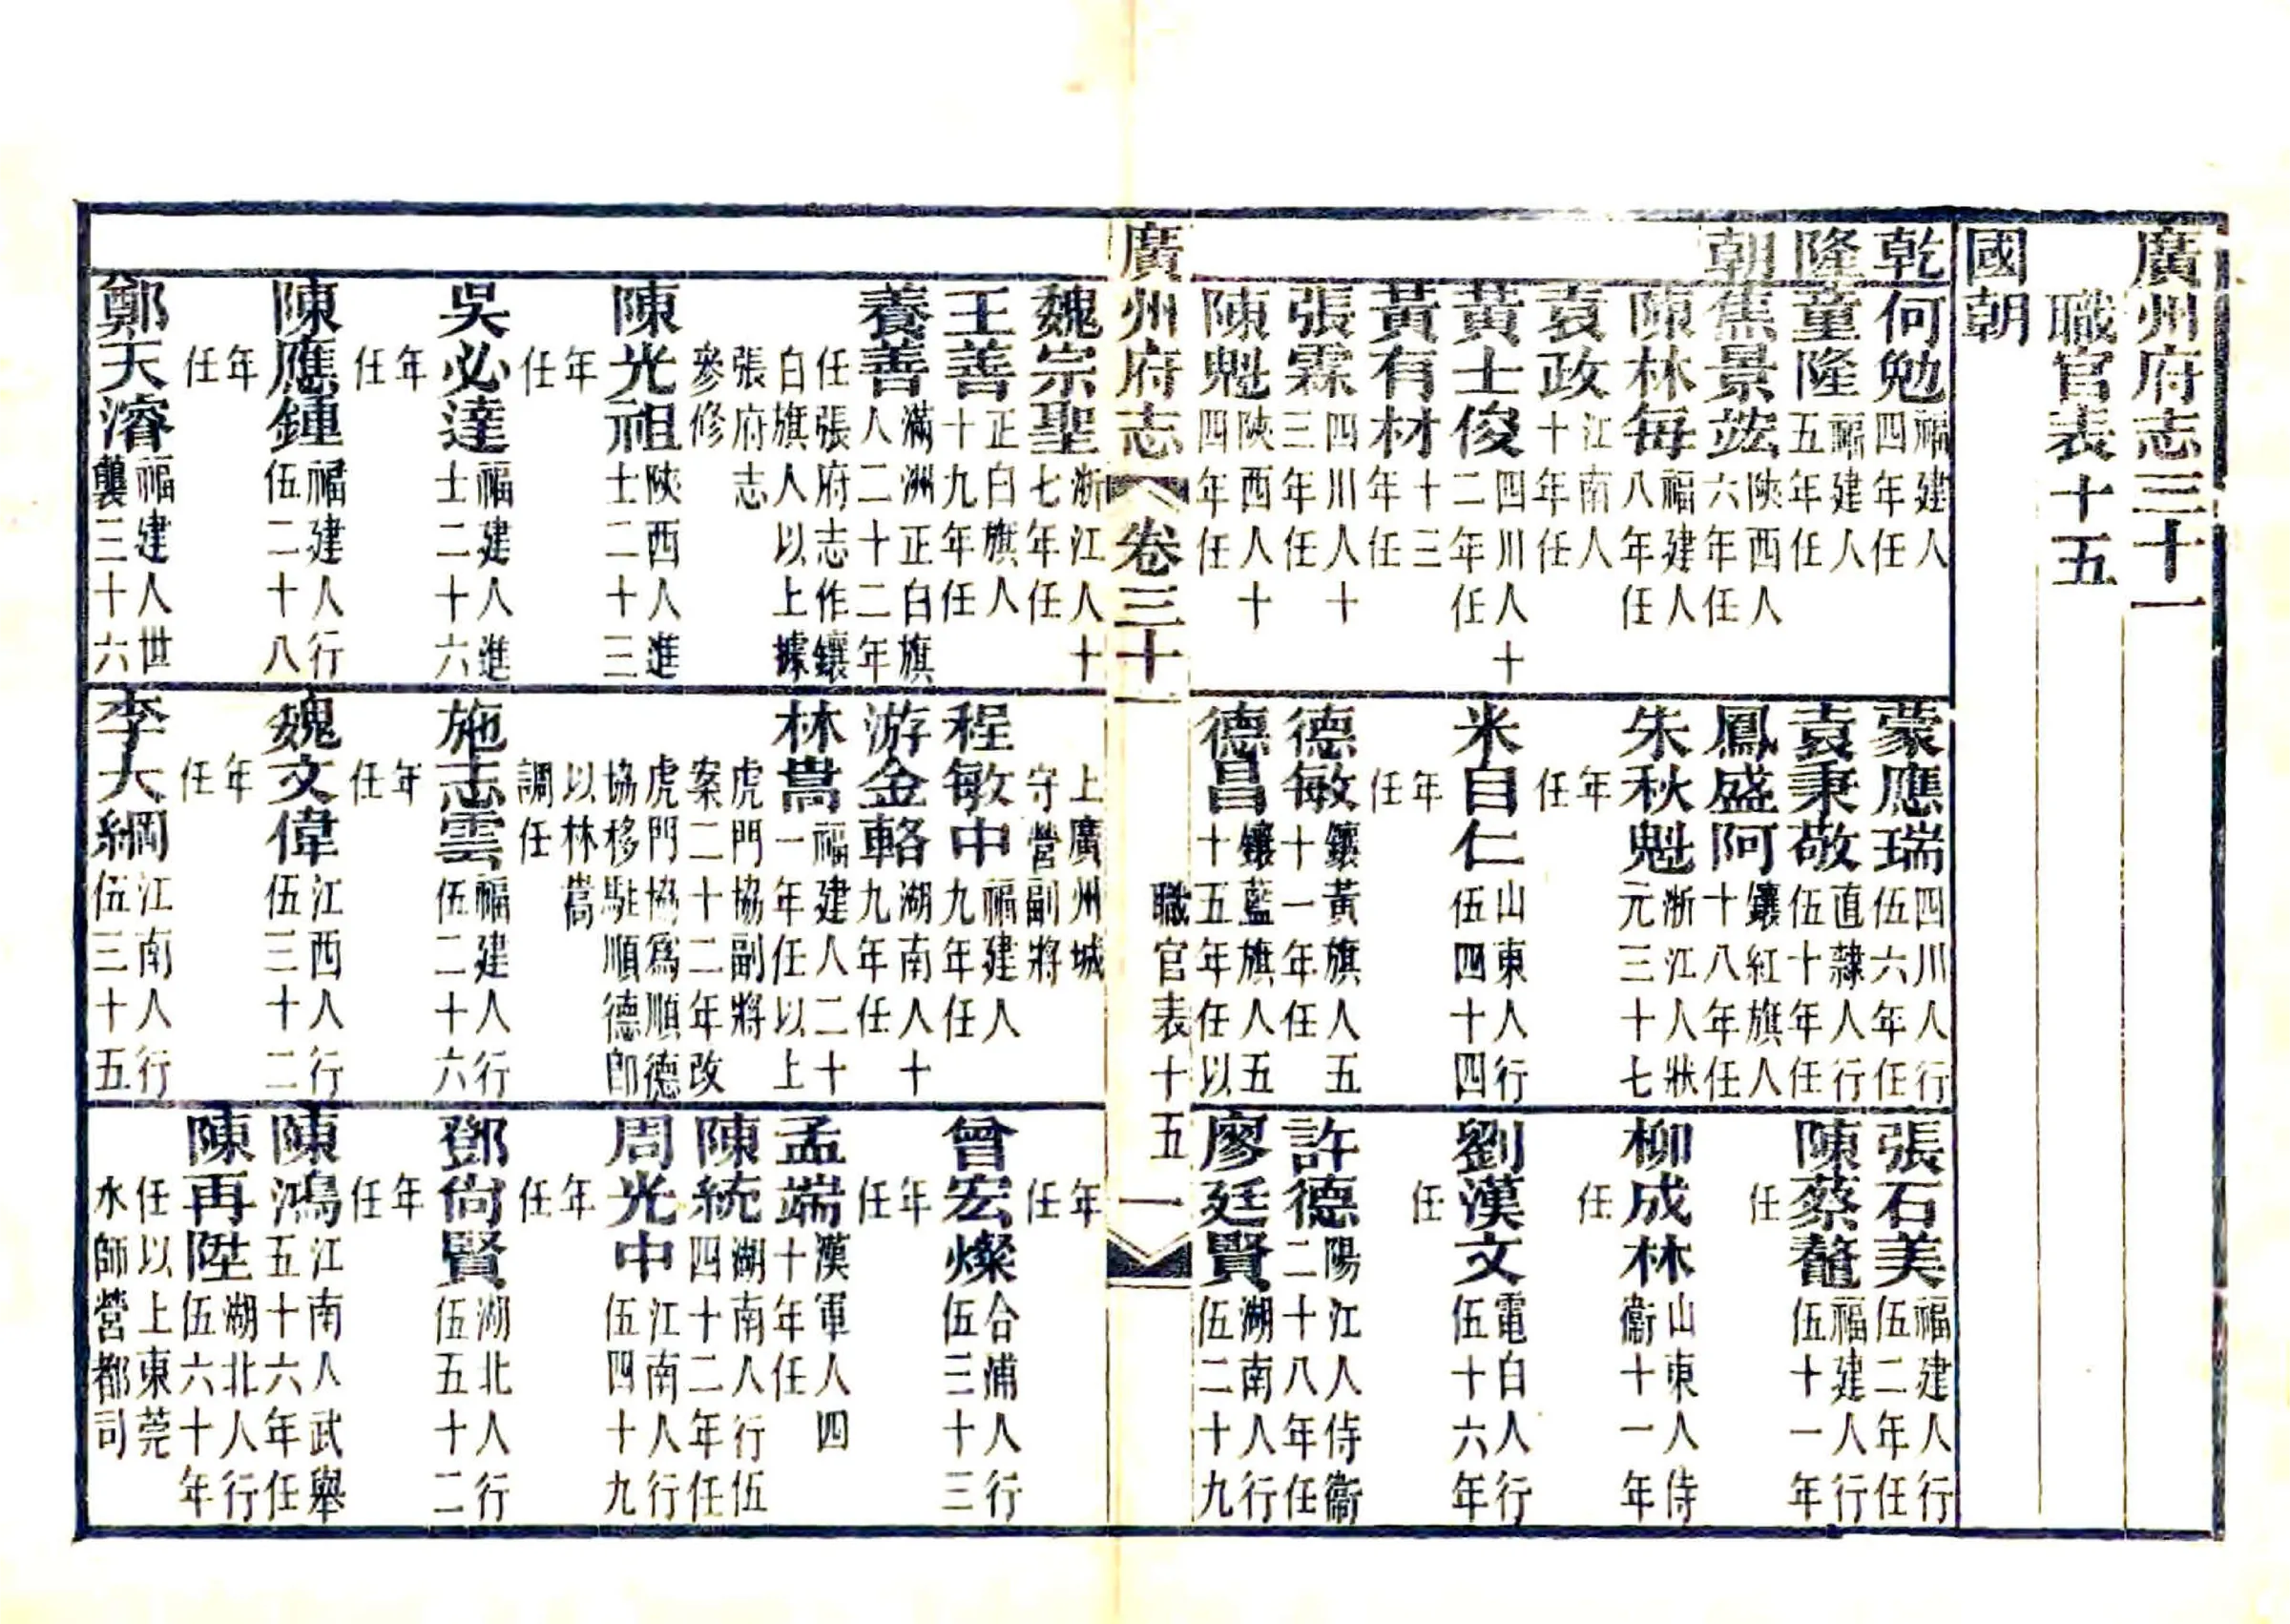 廣州府志三十一
職官表十五
國朝
乾隆朝
何勉福建人四年任
童隆福建人五年任
焦景竑陝西人六年任
陳林每福建人八年任
袁政江南人十年任
黃士俊四川人十二年任
黃有材十三年任
張霖四川人十三年任
陳魁陝西人十四年任
蒙應瑞四川人行伍六年任
袁秉敬直隸人行伍十年任
鳳盛阿鑲紅旗人十八年任
朱秋魁浙江人狀元三十七年任
米自仁山東人行伍四十四年任
德敏鑲黃旗人五十一年任
德昌鑲藍旗人五十五年任以
張石美福建人行伍二年任
陳蔡鼇福建人行伍十一年任
柳成林山東人侍衞十一年任
劉漢文電白人行伍十六年任
許德陽江人侍衞二十八年任
廖廷賢湖南人行伍二十九
廣州府志 卷三十一 職官表十五 一
魏宗聖浙江人十七年任
王善正白旗人十九年任
養善滿洲正白旗人二十二年任張府志作鑲白旗人以上據張府志參修
陳光祖陝西人進士二十三年任
吳必達福建人進士二十六年任
陳應鍾福建人行伍二十八年任
鄭天濬福建人世襲三十六
上廣州城守營副將
程敏中福建人九年任
游金輅湖南人十九年任
林嵩福建人二十一年任以上虎門協副將
案二十二年改虎門協爲順德協移駐順德卽以林嵩調任
施志雲福建人行伍二十六年任
魏文偉江西人行伍三十二年任
李大綱江南人行伍三十五
年任
曾宏燦合浦人行伍三十三年任
孟端漢軍人四十年任
陳統湖南人行伍四十二年任
周光中江南人行伍四十九年任
鄧尙賢湖北人行伍五十二年任
陳鴻江南人武舉五十六年任
陳再陞湖北人行伍六十年任以上東莞水師營都司